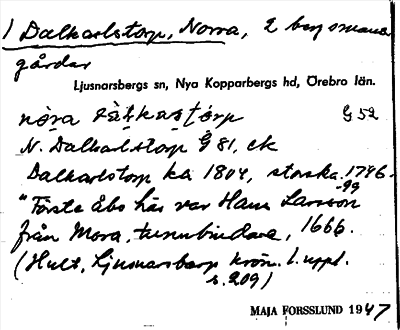 1 Dalkarlstorp, Norra, 2 bergsmans
gårdar
Ljusnarsbergs sn, Nya Kopparbergs hd, Örebro län.
nòra G 52
N. Dalkarlstorp G 81, ek
Dalkarlstorp ka 1804, storska. 1796-
-99
"Förste åbo här var Hans Larsson
från Mora, tunnbindare, 1666.
(Hult, Ljusnarsberg krön. 1. uppl.
s. 209)
MAJA FORSSLUND 1947